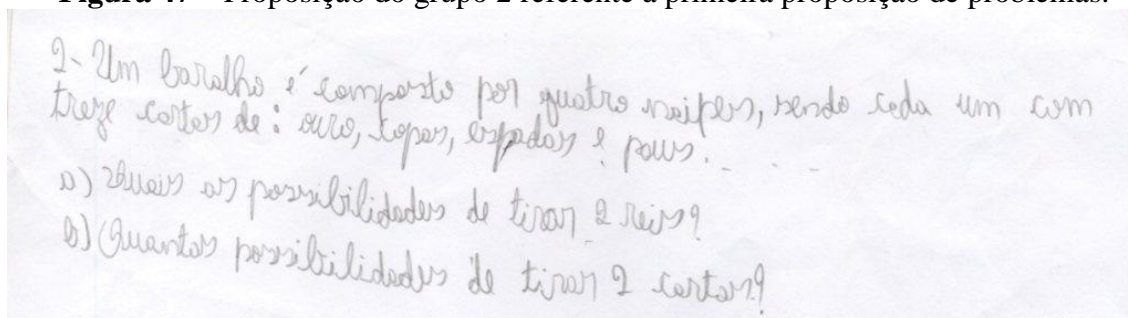 Figura 47 – Proposição do grupo 2 referente à primeira proposição de problemas.
2- Um baralho é composto por quatro naipes, sendo cada um com
treze cartas de: ouro, copas, espadas e paus.
a) Quais as possibilidades de tirar 2 reis?
b) Quantas possibilidades de tirar 2 cartas?